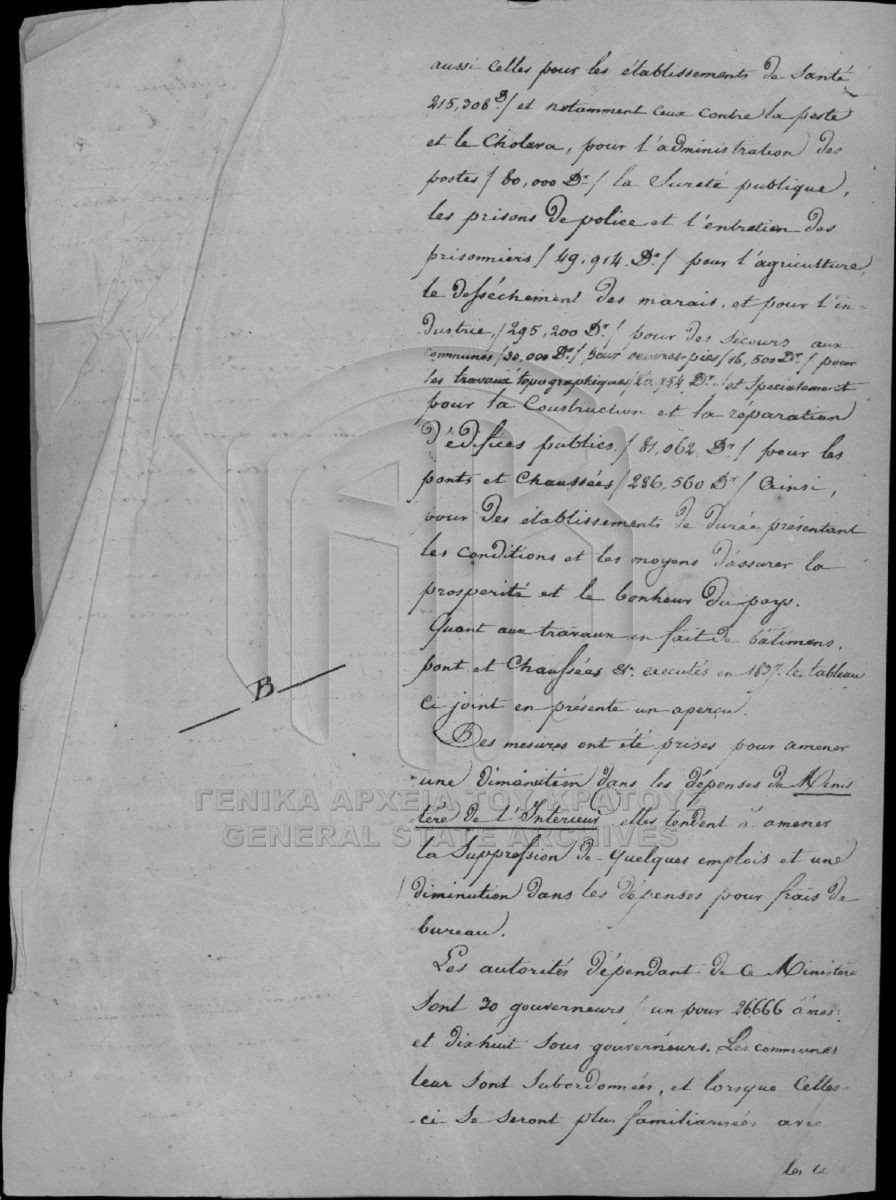 aussi celles pour les établissements de santé /
215,308 D./ et notamment ceux contre la peste
et le Cholera, pour l'administration des
postes / 80,000 Dr / la Sureté publique,
les prisons de police et l'entretien des
prisonniers / 49,914 Dr / pour l'agriculture,
le desséchement des marais, et pour l'in-
dustrie, / 295,200 Dr / pour des secours aux
communes / 30,000 Dr / pour oeuvres-pies / 16,500 Dr / pour
les travaux topographiques / 20,954 Dr / et specialement
pour la Construction et la réparation
d'édifices publics / 81,062 Dr / pour les
ponts et Chaussées / 226,560 Dr / Ainsi,
pour des établissements de durée présentant
les conditions et les moyens d'assurer la
prosperité et le bonheur du pays.
Quant aux travaux en fait de bâtimens,
pont et Chaussées &c. executés en 1837. le tableau
B
ci joint en présente un aperçu.
Des mesures ont été prises pour amener
une diminution dans les dépenses du Minis
ΓΕΝΙΚΑ ΑΡΧΕΙΑ ΤΟΥ ΚΡΑΤΟΥΣ
tère de l'Interieur, elles tendent à amener
GENERAL STATE ARCHIVES
la Suppression de quelques emplois et une
diminution dans les dépenses pour frais de
bureau.
Les autorités dépendant de ce Ministère
sont 30 gouverneurs / un pour 26666 âmes:
et dixhuit sous gouverneurs. Les communes
leur sont subordonnées, et lorsque celles-
-ci se seront plus familiarisées avec
les